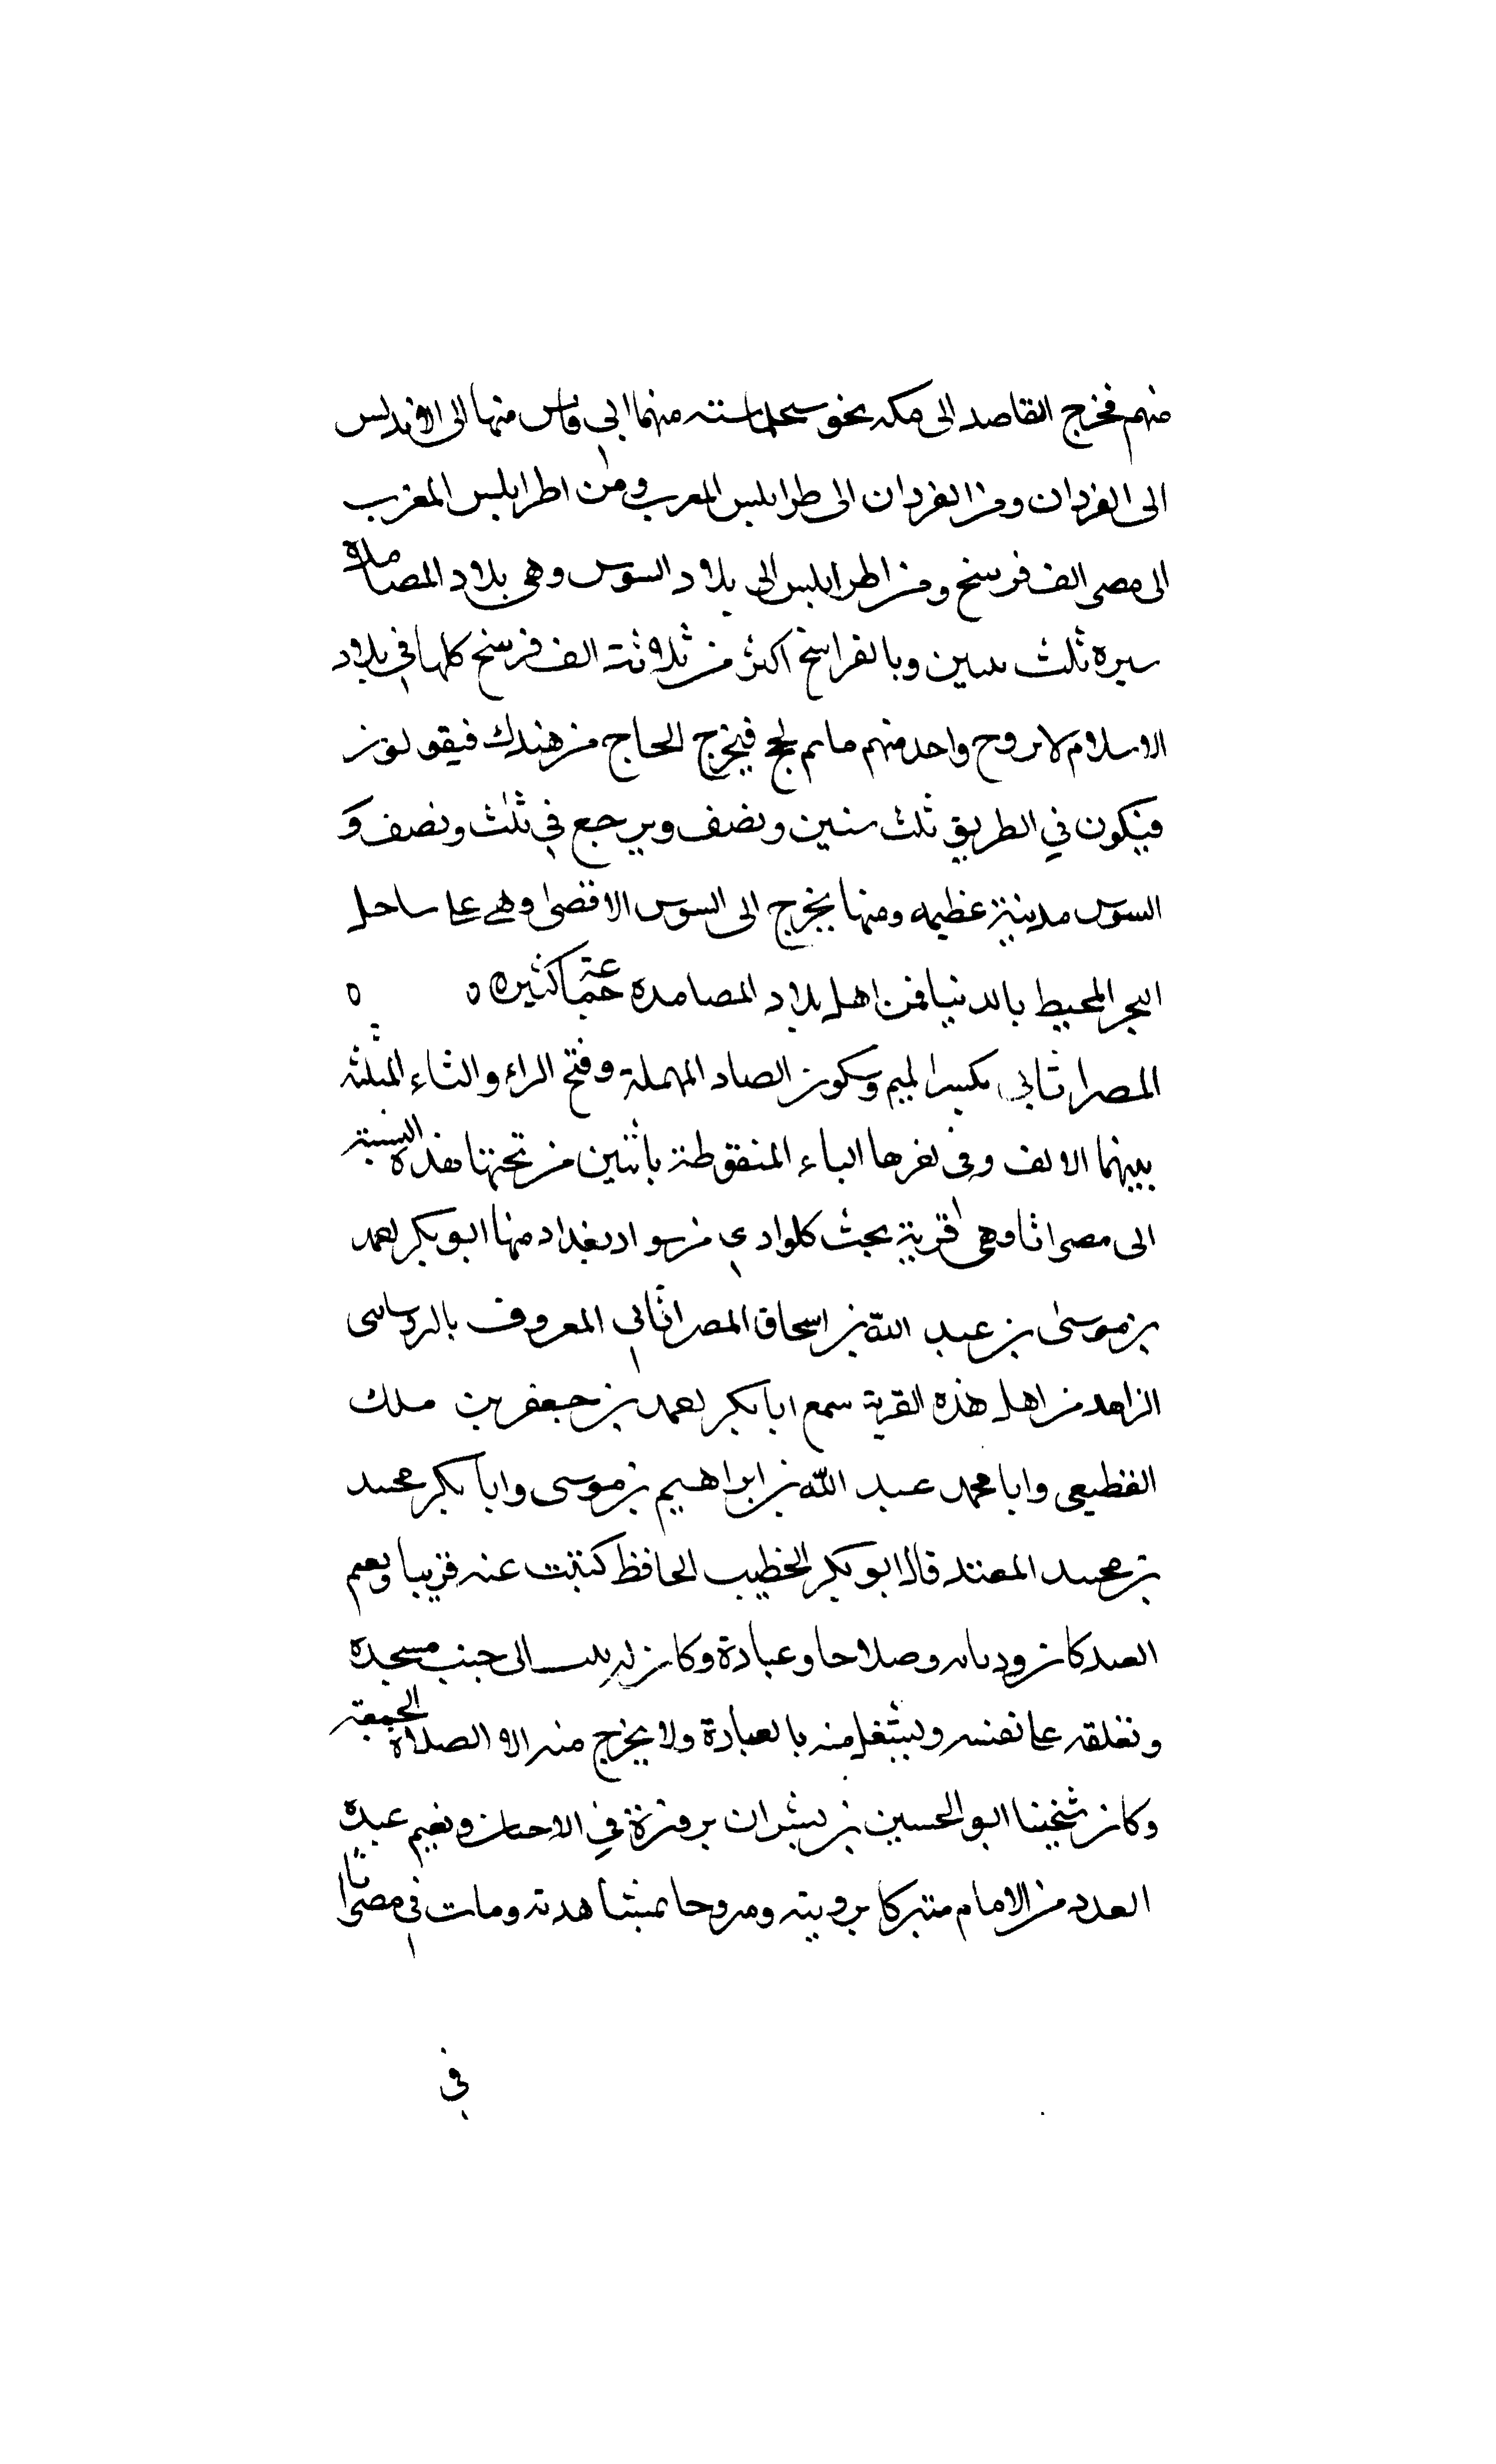 منهم فخرج القاصد الى مكه نحو سجلماسته منهما الى فاس منها الى الاندلس
الى الفردان ومن الفردان الى طرابلس المغرب ومن اطرابلس المغرب
الى مصر الف فرسخ ومن اطرابلس الى بلاد السوس وهى بلاد المصامدة
سيره ثلث سنين وبالفراسخ اكثر من ثلاثة الف فرسخ كلها فى بلاد
الاسلام لا يروح واحد منهم مالم يحج فيخرج الحاج من هندك فيقولون
فيكون في الطريق ثلث سنين ونصف ويرجع في ثلث ونصف و
السوس مدينة عظيمه ومنها يخرج الى السوس الاقصى وهى على ساحل
البحر المحيط بالدنيا فمن اهل بلاد المصامدة جماعة كثيره ٥ ٥
المصراثانى بكسر الميم وسكون الصاد المهملة وفتح الراء والثاء المثلثه
بينهما الالف وفى اخرها الياء المنقوطة باثنين من تحتها هذه النسبة
الى مصراثا وهى قرية بجنب كلواذى من سواد بغداد منها ابو بكر احمد
بن موسى بن عبد الله بن اسحاق المصراثانى المعروف بالروساى
الزاهد من اهل هذه القرية سمع ابا بكر احمد بن جعفر بن ملك
القطيعى وابا محمد عبد الله بن ابراهيم بن موسى وابا بكر محمد
بن محمد المفيد قال ابو بكر الخطيب الحافظ كتبت عنه قريبا ونعم
العبد كان وديانه وصلاحا وعبادة وكان له بيت الى جنب مسجده
ونغلقه على نفسه ويشتغل منه بالعبادة ولا يخرج منه الا الصلاة الجمعة
وكان شيخنا ابو الحسين بن بشران يروره في الاحيان ونعيم عبده
العدد من الامام متبركا برويته ومروحا بمشاهدته ومات فى مصراثا
في